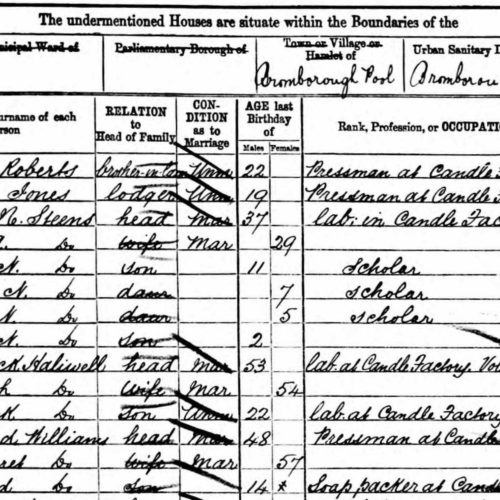 The undermentioned Houses are situate within the Boundaries of the
Municipal Ward of Parliamentary Borough of Town or Village or Hamlet of Urban Sanitary D
Bromborough Pool Bromborou
urname of each erson RELATION to Head of Family CONDITION as to Marriage AGE last Birthday of Males Females Rank, Profession, or OCCUPATI
Roberts brother-in-law Unm 22 Pressman at Candle F
Jones lodger Unm 19 Pressman at Candle F
N. Steens head Mar 37 lab: in Candle Fac
Do wife Mar 29
N. Do son 11 Scholar
N. Do daur 7 scholar
N. Do daur 5 scholar
N. Do son 2
ck Haliwell head Mar 53 lab. at Candle Factory. Vol
h Do Wife Mar 54
K. Do son Unm 22 lab. at Candle Factory
d Williams head Mar 48 Pressman at Candle
ret Do wife Mar 57
d Do son 14 * Soap packer at Candle